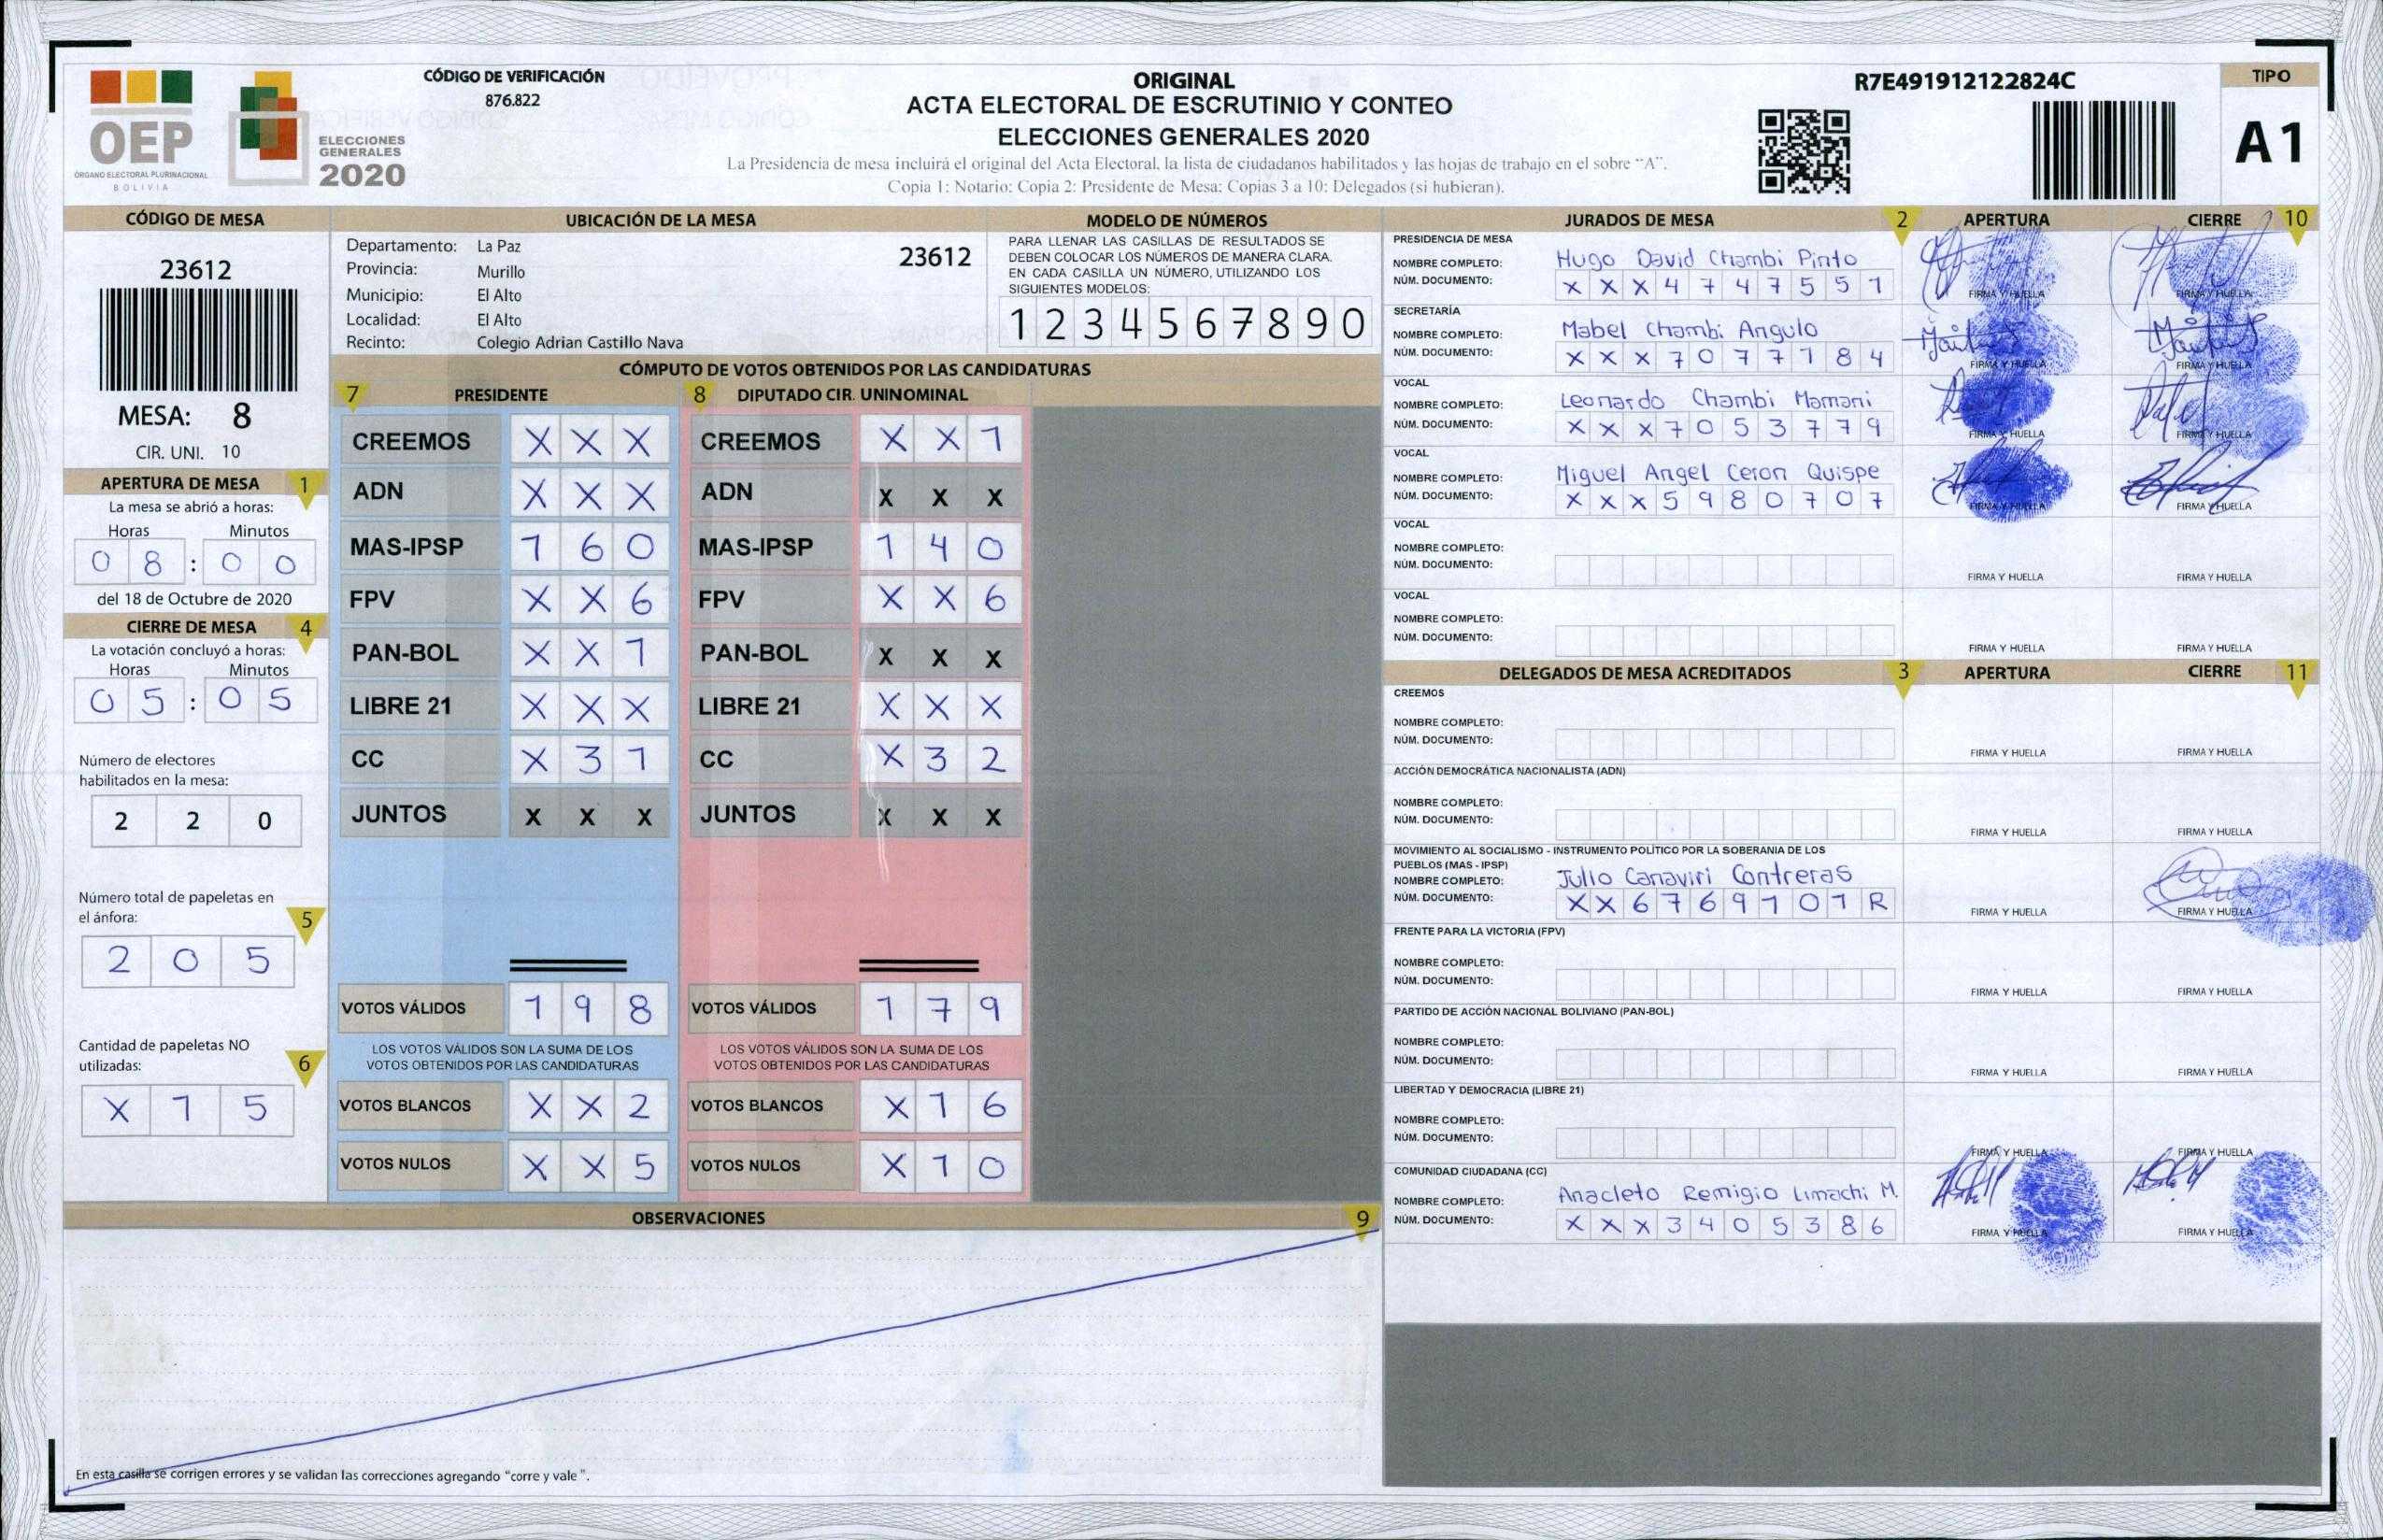 OEP
ÓRGANO ELECTORAL PLURINACIONAL
BOLIVIA
ELECCIONES
GENERALES
2020
CÓDIGO DE VERIFICACIÓN
876.822
ORIGINAL
ACTA ELECTORAL DE ESCRUTINIO Y CONTEO
ELECCIONES GENERALES 2020
La Presidencia de mesa incluirá el original del Acta Electoral, la lista de ciudadanos habilitados y las hojas de trabajo en el sobre "A".
Copia 1: Notario; Copia 2: Presidente de Mesa; Copias 3 a 10: Delegados (si hubieran).
R7E491912122824C
TIPO
A1
CÓDIGO DE MESA
23612
MESA: 8
CIR. UNI. 10
APERTURA DE MESA 1
La mesa se abrió a horas:
Horas Minutos
0 8 : 0 0
del 18 de Octubre de 2020
CIERRE DE MESA 4
La votación concluyó a horas:
Horas Minutos
0 5 : 0 5
Número de electores
habilitados en la mesa:
2 2 0
Número total de papeletas en
el ánfora: 5
2 0 5
Cantidad de papeletas NO
utilizadas: 6
X 1 5
UBICACIÓN DE LA MESA
Departamento: La Paz 23612
Provincia: Murillo
Municipio: El Alto
Localidad: El Alto
Recinto: Colegio Adrian Castillo Nava
MODELO DE NÚMEROS
PARA LLENAR LAS CASILLAS DE RESULTADOS SE
DEBEN COLOCAR LOS NÚMEROS DE MANERA CLARA.
EN CADA CASILLA UN NÚMERO, UTILIZANDO LOS
SIGUIENTES MODELOS:
1 2 3 4 5 6 7 8 9 0
CÓMPUTO DE VOTOS OBTENIDOS POR LAS CANDIDATURAS
7 PRESIDENTE 8 DIPUTADO CIR. UNINOMINAL
CREEMOS X X X CREEMOS X X 1
ADN X X X ADN X X X
MAS-IPSP 1 6 0 MAS-IPSP 1 4 0
FPV X X 6 FPV X X 6
PAN-BOL X X 1 PAN-BOL X X X
LIBRE 21 X X X LIBRE 21 X X X
CC X 3 1 CC X 3 2
JUNTOS X X X JUNTOS X X X
VOTOS VÁLIDOS 1 9 8 VOTOS VÁLIDOS 1 7 9
LOS VOTOS VÁLIDOS SON LA SUMA DE LOS LOS VOTOS VÁLIDOS SON LA SUMA DE LOS
VOTOS OBTENIDOS POR LAS CANDIDATURAS VOTOS OBTENIDOS POR LAS CANDIDATURAS
VOTOS BLANCOS X X 2 VOTOS BLANCOS X 1 6
VOTOS NULOS X X 5 VOTOS NULOS X 1 0
OBSERVACIONES 9
En esta casilla se corrigen errores y se validan las correcciones agregando "corre y vale".
JURADOS DE MESA 2 APERTURA CIERRE 10
PRESIDENCIA DE MESA
NOMBRE COMPLETO: Hugo David Chambi Pinto
NÚM. DOCUMENTO: X X X 4 7 4 7 5 5 1
FIRMA Y HUELLA FIRMA Y HUELLA
SECRETARÍA
NOMBRE COMPLETO: Mabel Chambi Angulo
NÚM. DOCUMENTO: X X X 7 0 7 7 1 8 4
FIRMA Y HUELLA FIRMA Y HUELLA
VOCAL
NOMBRE COMPLETO: Leonardo Chambi Mamani
NÚM. DOCUMENTO: X X X 7 0 5 3 7 7 9
FIRMA Y HUELLA FIRMA Y HUELLA
VOCAL
NOMBRE COMPLETO: Miguel Angel Ceron Quispe
NÚM. DOCUMENTO: X X X 5 9 8 0 7 0 7
FIRMA Y HUELLA FIRMA Y HUELLA
VOCAL
NOMBRE COMPLETO:
NÚM. DOCUMENTO:
FIRMA Y HUELLA FIRMA Y HUELLA
VOCAL
NOMBRE COMPLETO:
NÚM. DOCUMENTO:
FIRMA Y HUELLA FIRMA Y HUELLA
DELEGADOS DE MESA ACREDITADOS 3 APERTURA CIERRE 11
CREEMOS
NOMBRE COMPLETO:
NÚM. DOCUMENTO:
FIRMA Y HUELLA FIRMA Y HUELLA
ACCIÓN DEMOCRÁTICA NACIONALISTA (ADN)
NOMBRE COMPLETO:
NÚM. DOCUMENTO:
FIRMA Y HUELLA FIRMA Y HUELLA
MOVIMIENTO AL SOCIALISMO - INSTRUMENTO POLÍTICO POR LA SOBERANIA DE LOS
PUEBLOS (MAS - IPSP)
NOMBRE COMPLETO: Julio Canaviri Contreras
NÚM. DOCUMENTO: X X 6 7 6 9 1 0 1 R
FIRMA Y HUELLA FIRMA Y HUELLA
FRENTE PARA LA VICTORIA (FPV)
NOMBRE COMPLETO:
NÚM. DOCUMENTO:
FIRMA Y HUELLA FIRMA Y HUELLA
PARTIDO DE ACCIÓN NACIONAL BOLIVIANO (PAN-BOL)
NOMBRE COMPLETO:
NÚM. DOCUMENTO:
FIRMA Y HUELLA FIRMA Y HUELLA
LIBERTAD Y DEMOCRACIA (LIBRE 21)
NOMBRE COMPLETO:
NÚM. DOCUMENTO:
FIRMA Y HUELLA FIRMA Y HUELLA
COMUNIDAD CIUDADANA (CC)
NOMBRE COMPLETO: Anacleto Remigio Limachi M.
NÚM. DOCUMENTO: X X X 3 4 0 5 3 8 6
FIRMA Y HUELLA FIRMA Y HUELLA